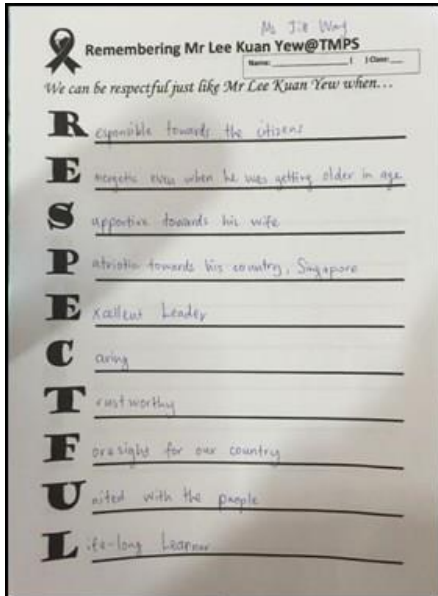 Ms Jie Wang
Remembering Mr Lee Kuan Yew@TMPS
Name: ( ) Class:
We can be respectful just like Mr Lee Kuan Yew when...
Responsible towards the citizens
Energetic even when he was getting older in age
Supportive towards his wife
Patriotic towards his country, Singapore
Excellent Leader
Caring
Trustworthy
Foresight for our country
United with the people
Life-long Learner